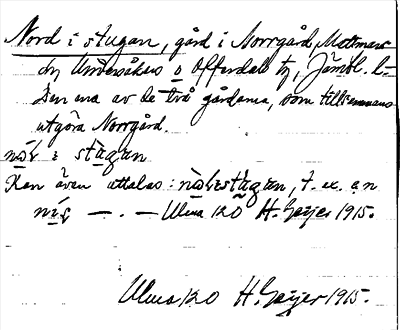 Nord i stugan, gård i Norrgård, Mettmars
by Undersåkers o Offerdals tg, Jämtl. l.
Den ena av de två gårdarna, som tillsammans
utgöra Norrgård.
i stugan
Kan även uttalas: t. ex. en
Ulma 120 H. Geijer 1915.
Ulma 120 H. Geijer 1915.